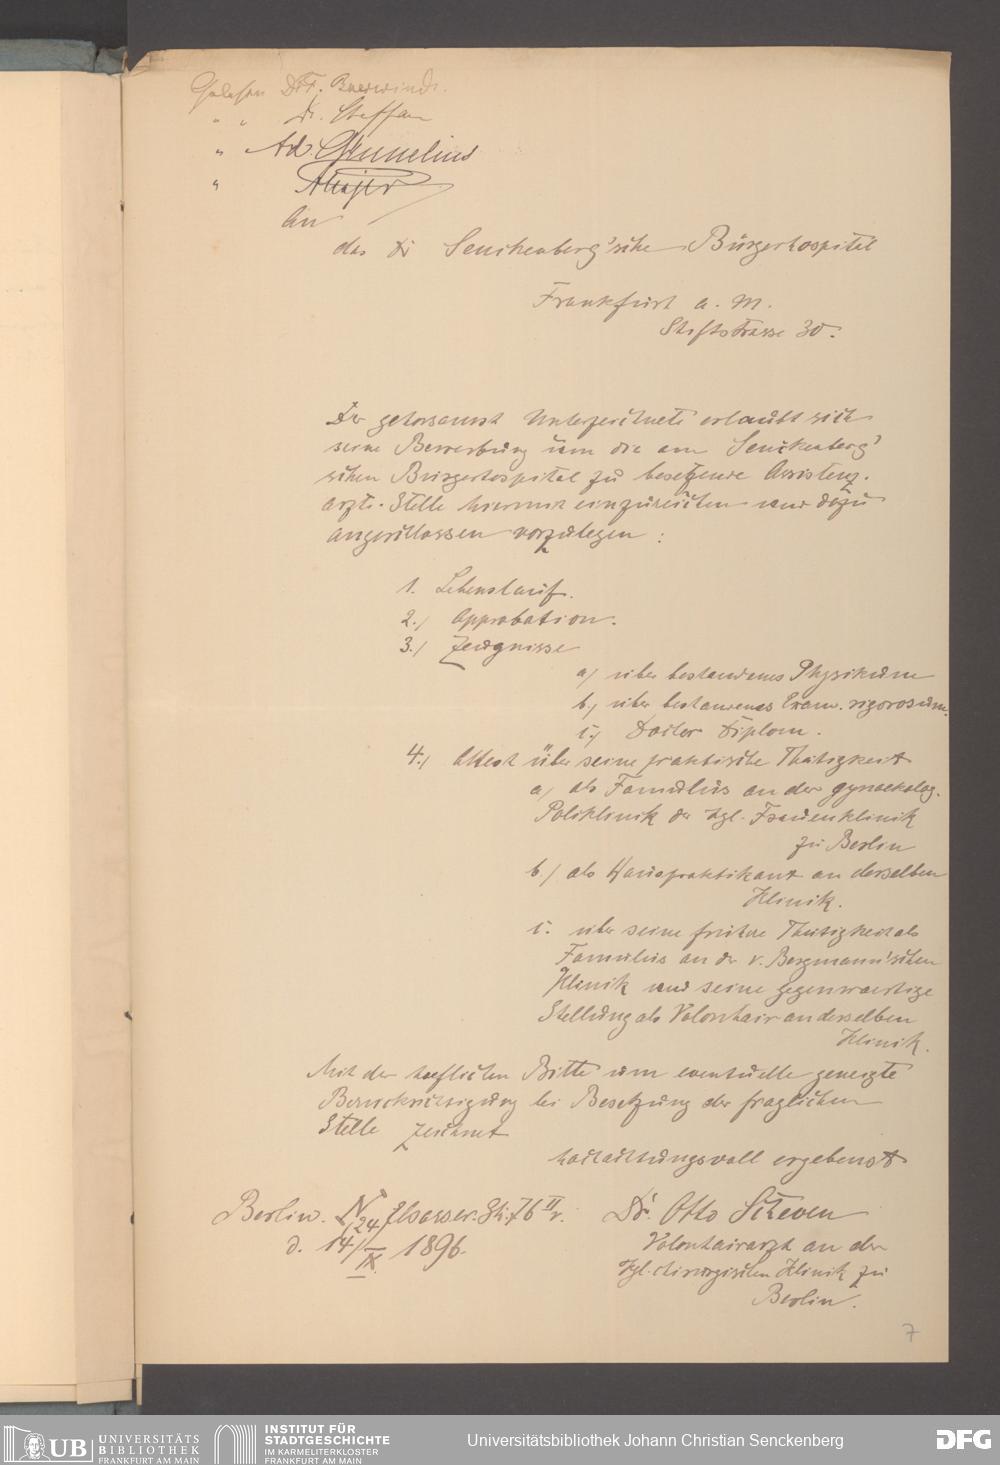 Gelesen Dr. F. Baerwindt.
" " Dr. Steffan
" Ad. Gmelius
"
An
das Dr Senckenberg'sche Bürgerhospital
Frankfurt a. M.
Stiftstrasse 30.
Der gehorsamst Unterzeichnete erlaubt sich
seine Bewerbung üm die am Senckenberg'
schen Bürgerhospital zü besetzende Assistenz-
arzt-Stelle hiermit einzüreichen und dazü
angeschlossen vorzülegen:
1. Lebenslaüf.
2.) Approbation.
3.) Zeügnisse
a) über bestandenes Physiküm
b) über bestandenes Exam. rigorosüm.
c.) Doctor Diplom.
4.) Attest über seine praktische Thätigkeit
a) als Famülüs an der gynaekolog.
Poliklinik der kgl. Fraüenklinik
zü Berlin
b.) als Haüspraktikant an derselben
Klinik.
c. über seine frühere Thätigkeit als
Famulüs an der v. Bergmann'schen
Klinik und seine gegenwaertige
Stellüng als Volontair an derselben
Klinik.
Mit der hoeflichen Bitte um eventüelle geneigte
Berücksichtigüng bei Besetzüng der fraglichen
Stelle zeichnet
hochachtüngsvoll ergebenst
Berlin. N, 24, Elsasser-Str. 76 II r. Dr. Otto Scheven
d. 14/IX. 1896. Volontairarzt an der
Kgl. chirürgischen Klinik zü
Berlin.
7
UB UNIVERSITÄTS
BIBLIOTHEK
FRANKFURT AM MAIN
INSTITUT FÜR
STADTGESCHICHTE
IM KARMELITERKLOSTER
FRANKFURT AM MAIN
Universitätsbibliothek Johann Christian Senckenberg
DFG